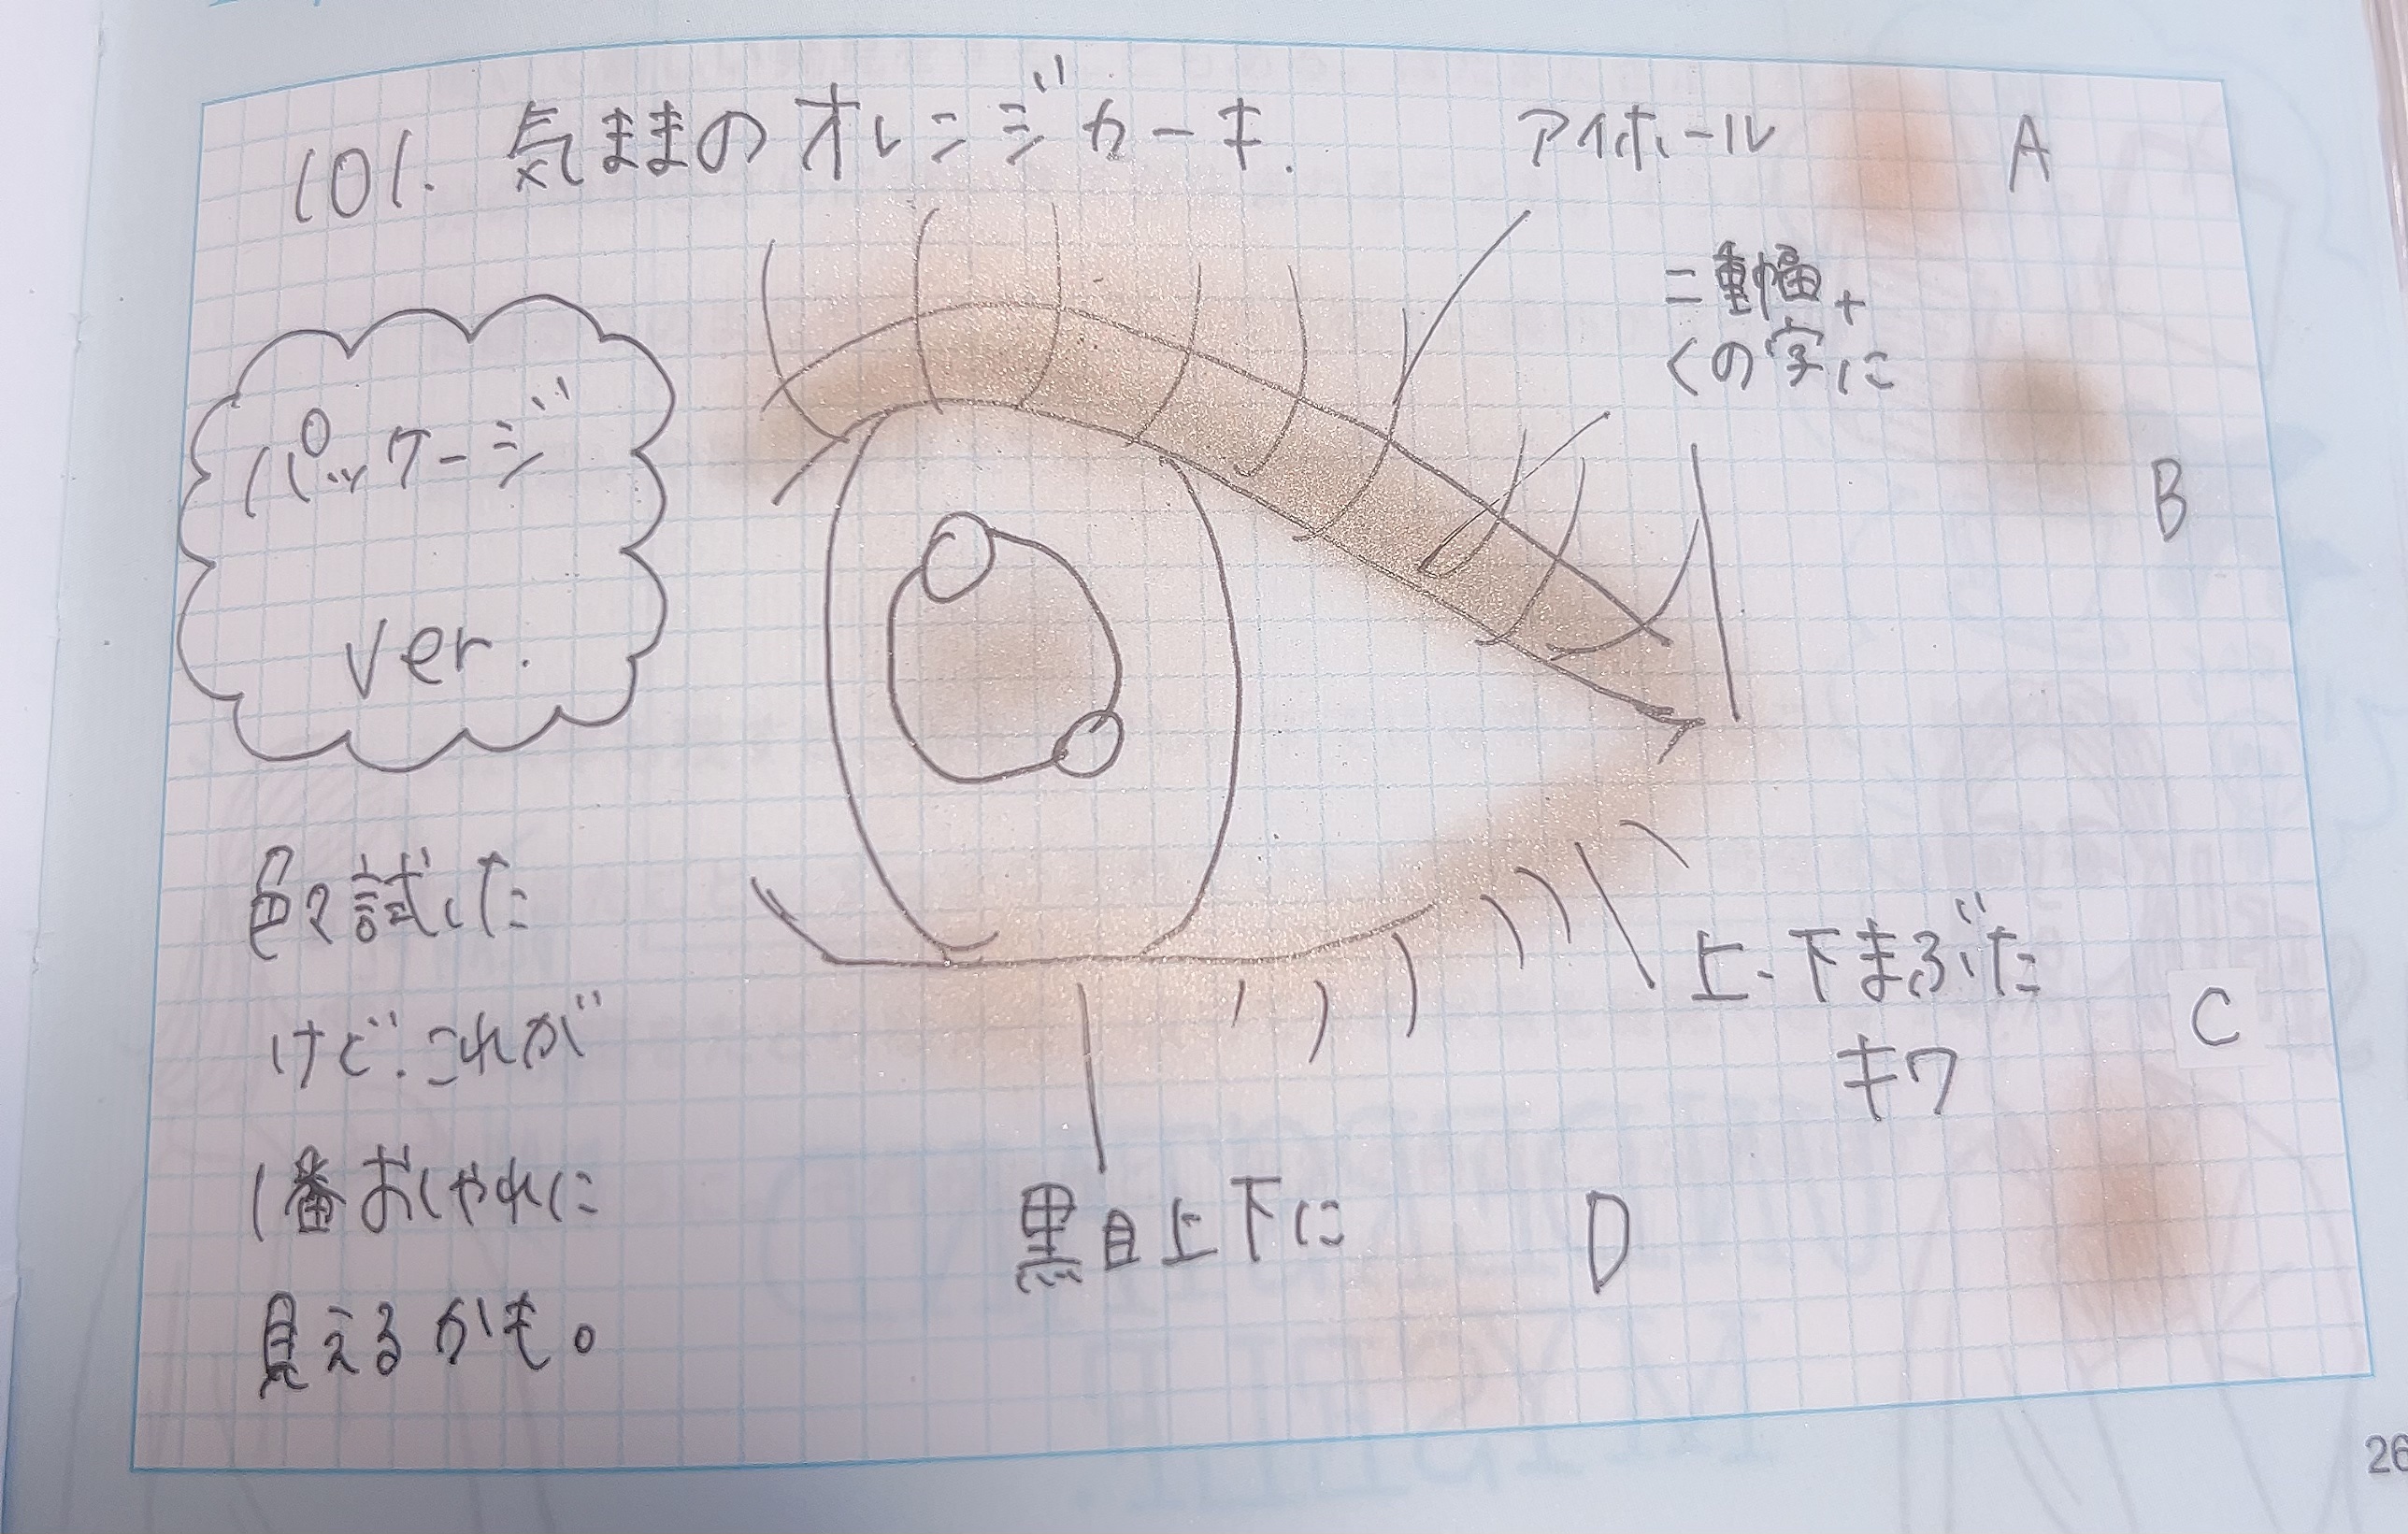 101. 気ままのオレンジカーキ.
アイホール A
二重幅+
くの字に
B
パッケージ
ver.
色々試した
けど.これが
1番おしゃれに
見えるかも。
上・下まぶた
キワ
C
黒目上下に D
26